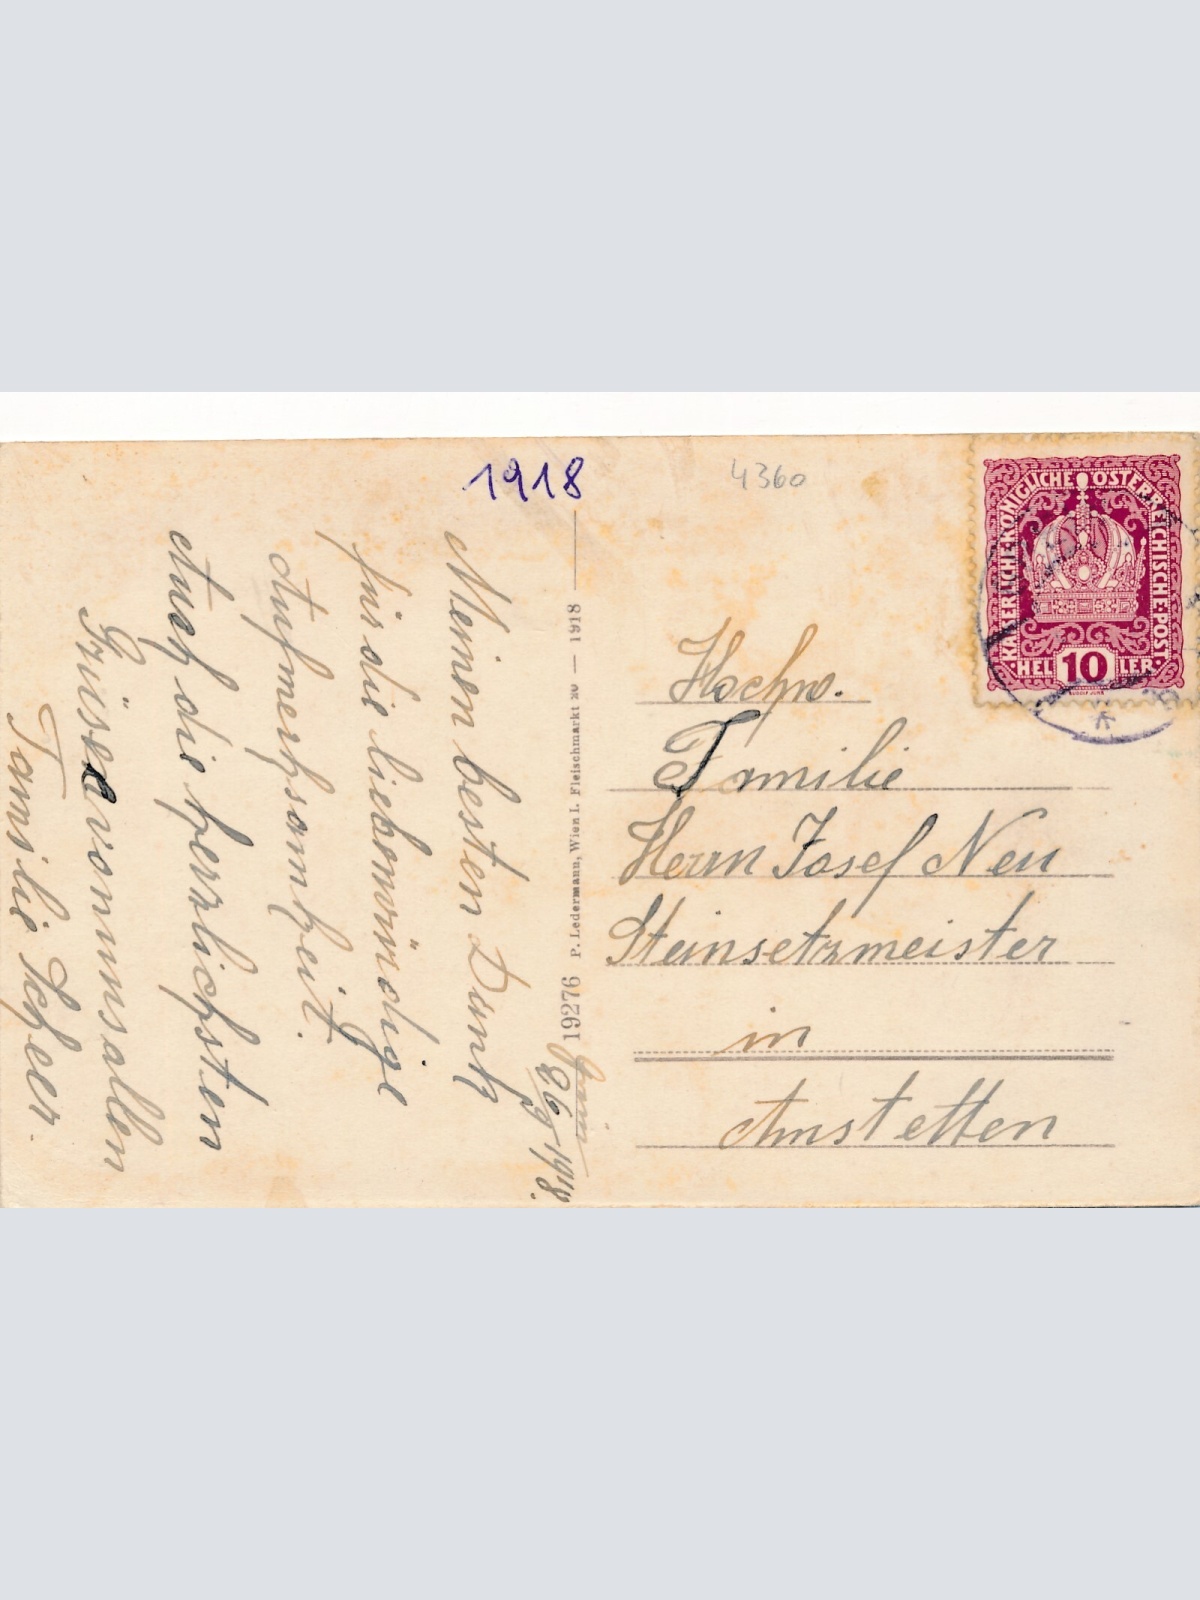 1918
4360
KAISERLICHE·KÖNIGLICHE ÖSTERREICHISCHE·POST
HEL 10 LER
Grein
26/9 1918.
Meinen besten Dank
für die liebenwürdige
Aufmerksamkeit.
Auch die herzlichsten
Grüsse von uns allen
Familie Scheer.
19276 P. Ledermann, Wien I. Fleischmarkt 20 — 1918
Hochw.
Familie
Herrn Josef Neu
Steinsetzmeister
in
Amstetten